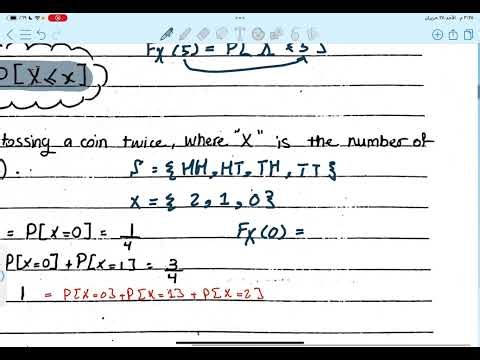 Fx(5) = P[X ≤ 5]
P[X ≤ x]
tossing a coin twice, where "X" is the number of
S = {HH, HT, TH, TT}
X = {2, 1, 0}
= P[X=0] = 1/4
Fx(0) =
P[X=0] + P[X=1] = 3/4
1 = P[X=0] + P[X=1] + P[X=2]